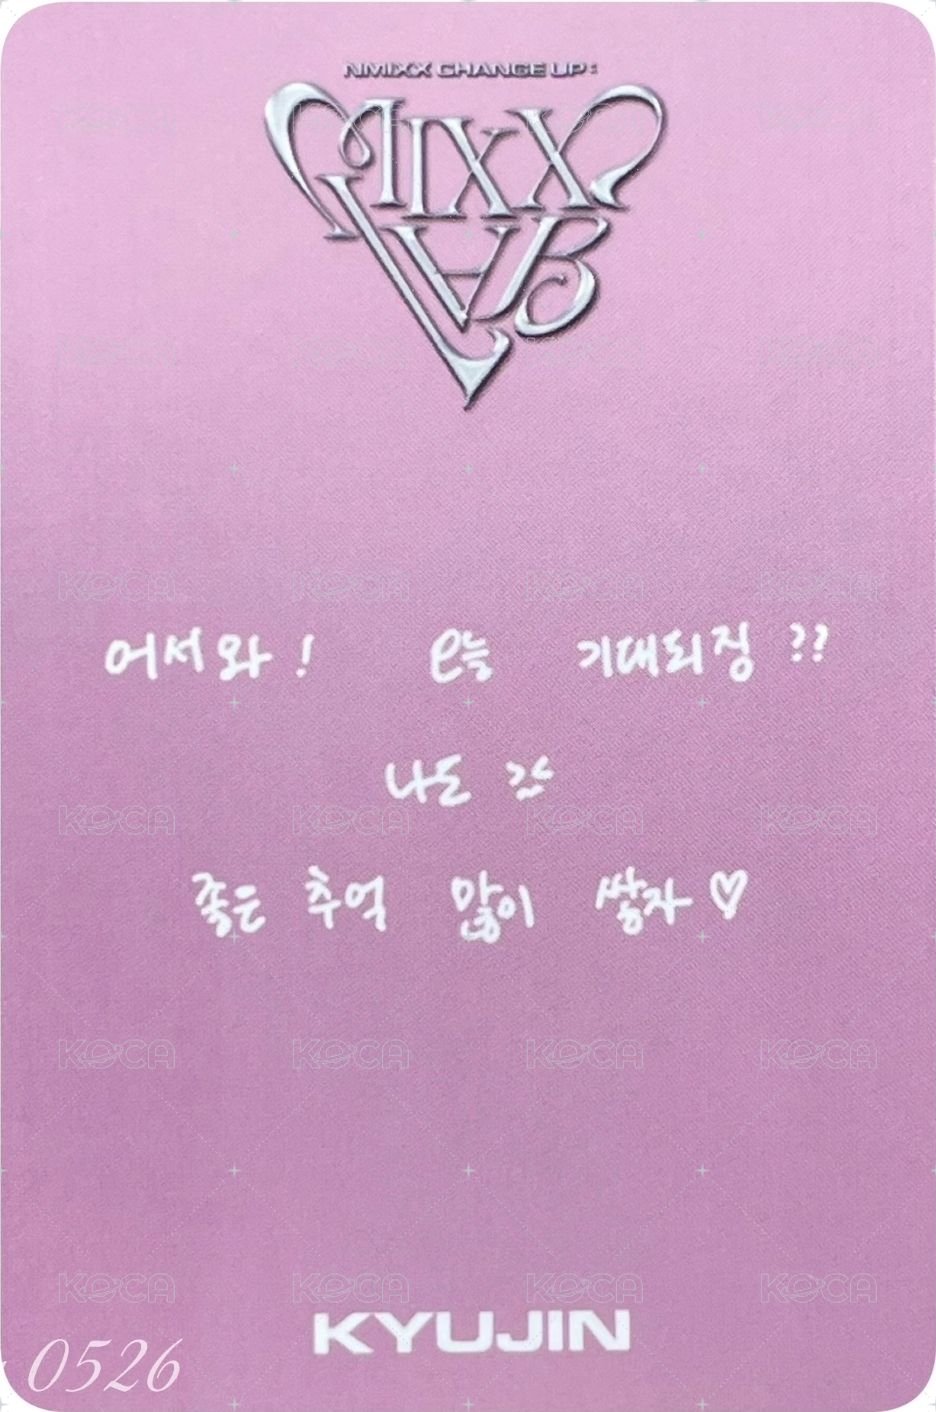 NMIXX CHANGE UP :
MIXX
LAB
어서와! 오늘 기대되징??
나도 ㅎㅎ
좋은 추억 많이 쌓자♡
KYUJIN
0526
KOCA KOCA KOCA KOCA
KOCA KOCA KOCA KOCA
KOCA KOCA KOCA KOCA
KOCA KOCA KOCA KOCA